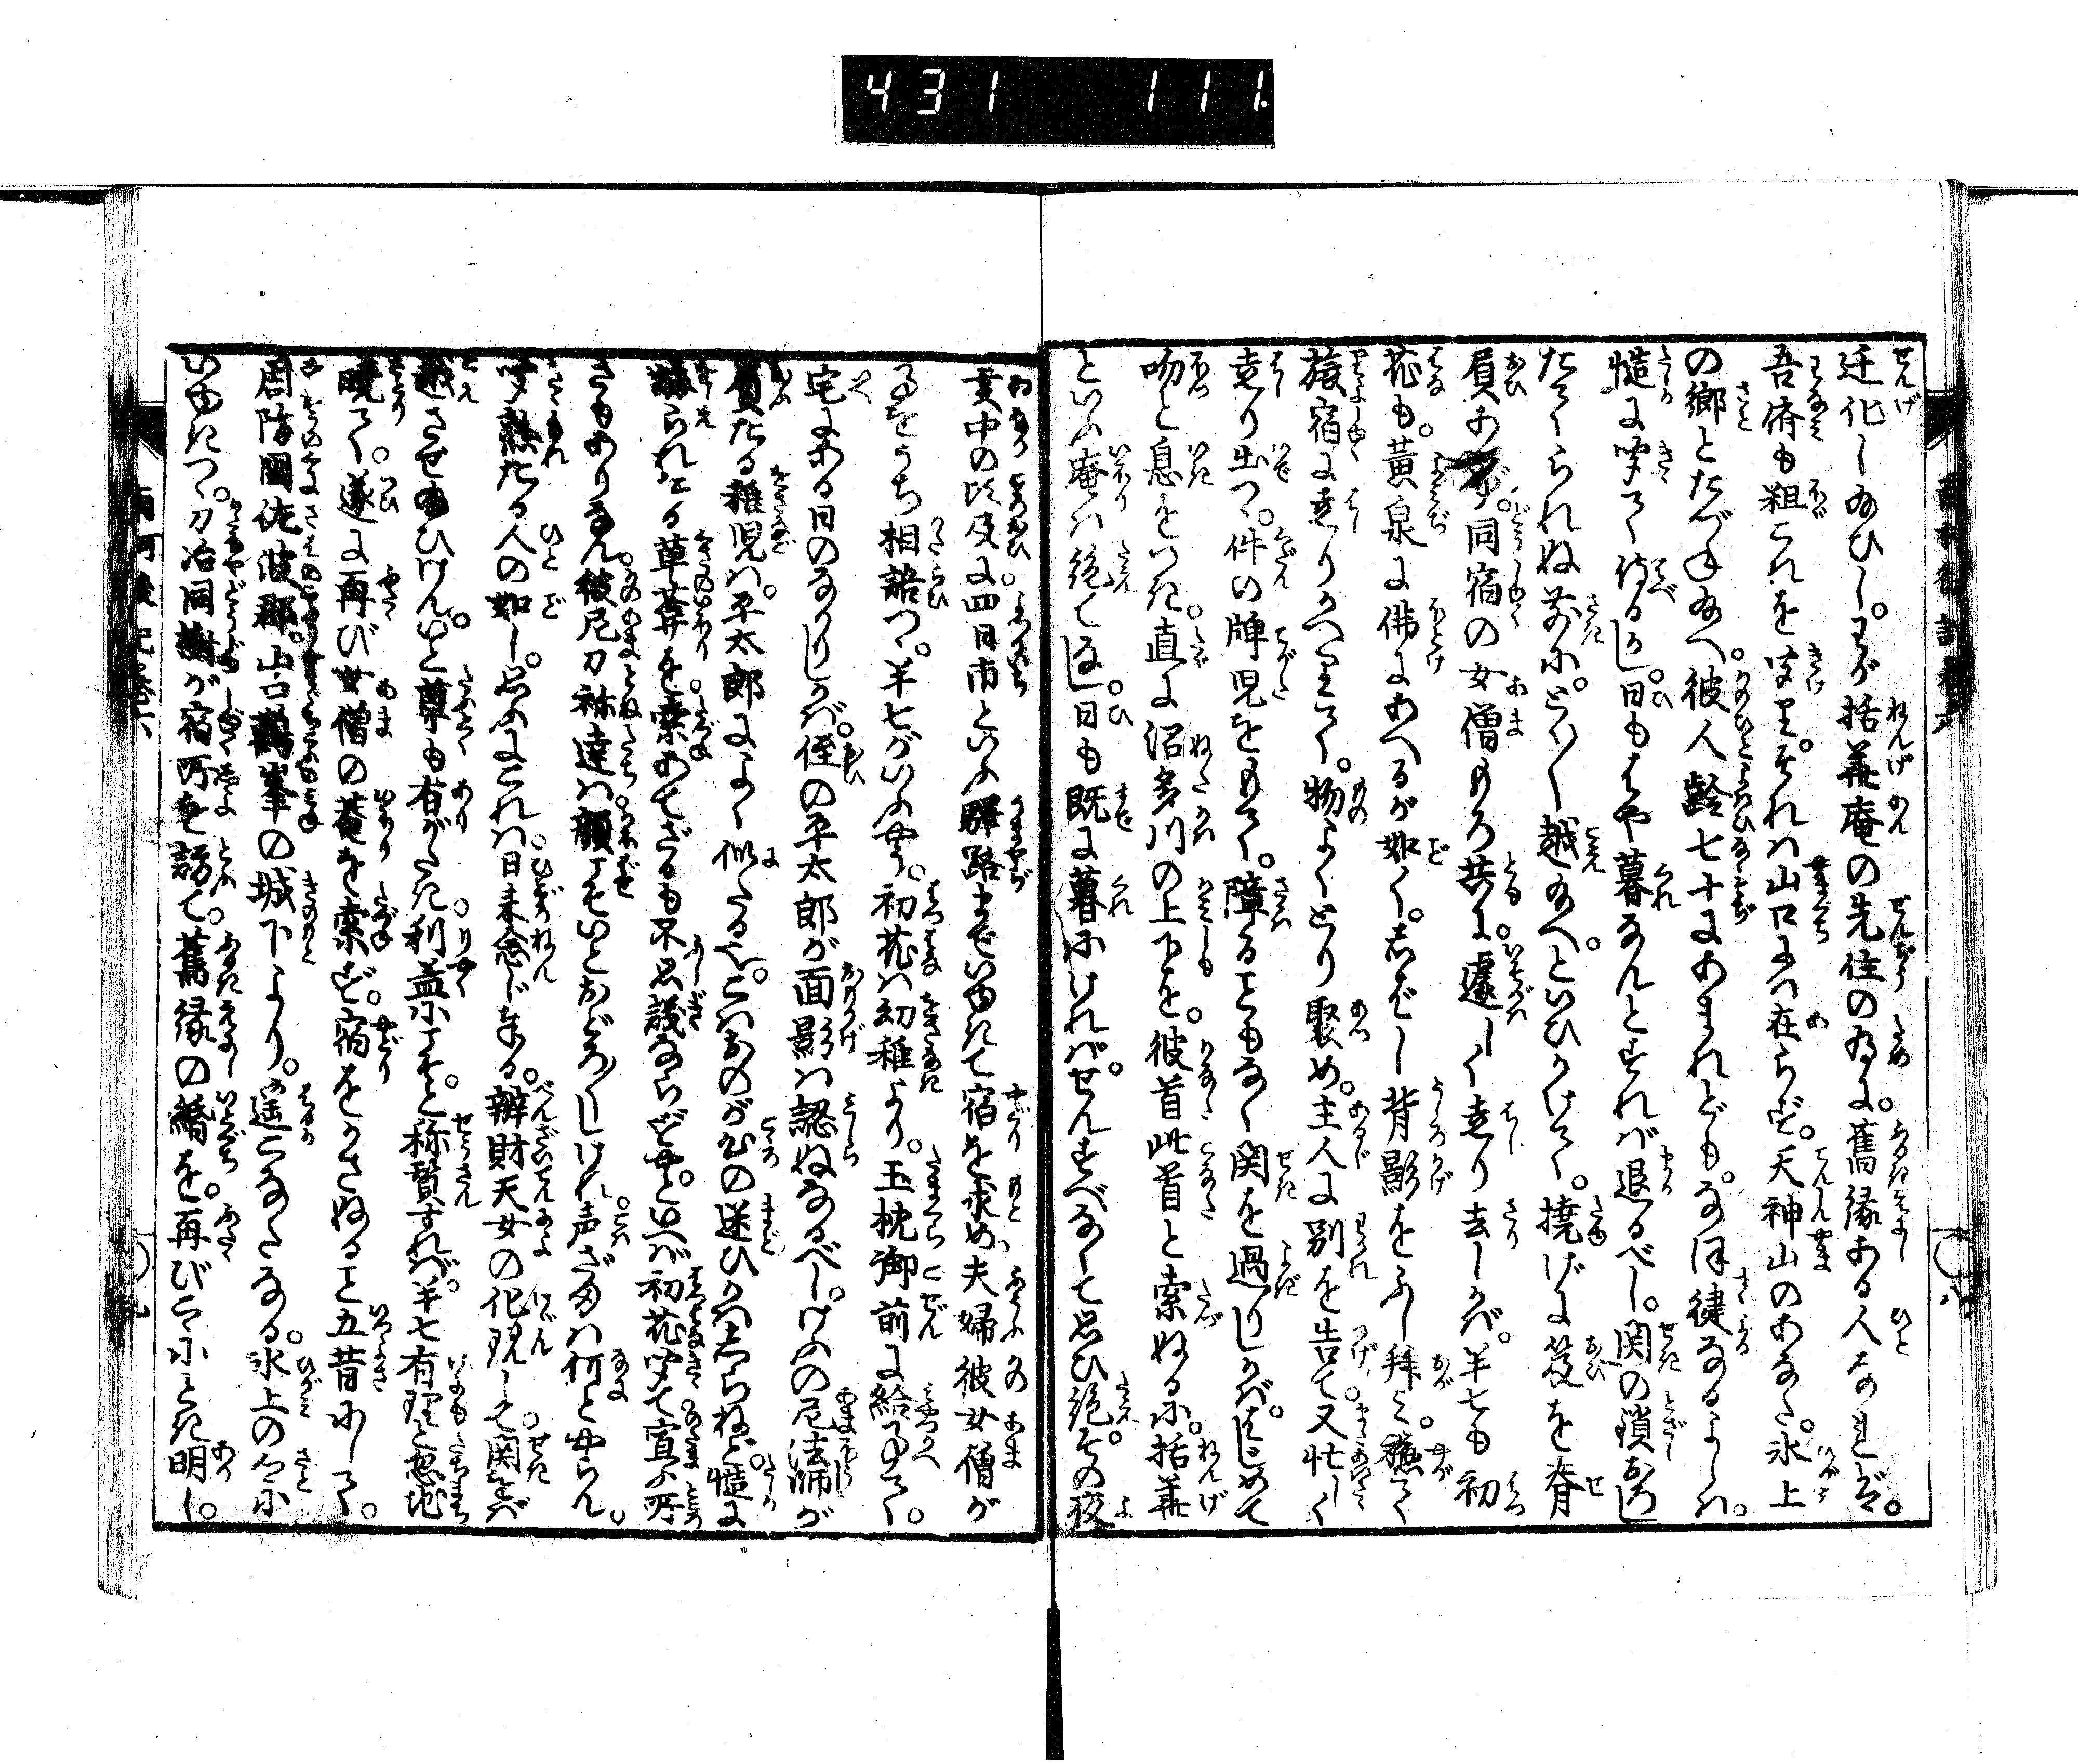 431 111.
迁化し給ひし。わが括華庵の先住の為に。舊縁ある人なれど。
吾儕も粗これを聞り。それは山口には在らず。天神山のあなた。氷上
の郷とたづね給へ。彼人齢七十にあまれども。なほ健なるよしは。
慥に聞て侍るなり。日もはや暮なんとすれば退るべし。関の鎖おろし
たてられぬ前に。とく／＼越給へ。といひかけて。撓げに笈を脊
負あげ。同宿の女僧もろ共に。遽しく走り去しかば。半七も初
花も。黄泉に佛にあへるが如く。しばし背影をふし拝み。稍て
旅宿に走りかへりて。物よくとり聚め。主人に別を告て。又忙しく
走り出つ。件の牌児をもて。障ることもなく関を過りしかば。はじめて
吻と息をつき。直に沼多川の上下を。彼首此首と索ぬるに。括華
といふ庵は絶てなし。日も既に暮にければ。せんすべなくて思ひ絶。その夜
亥中の比及に。四日市といふ驛路までいゆきて宿を求め。夫婦彼女僧が
うち相語つ。半七がいふやう。初花は幼稚より。玉枕御前に給事て。
宅にある日のなかりしかば。侄の平太郎が面影は認ぬなるべし。けふの尼法師が
負たる稚児は。平太郎によく似たる也。こはおのが心の迷ひかはしらねど。慥に
られける草菴を索あてざるも不思議ならずや。といへば初花聞て。宣ふ所
さもありなん。彼尼刀祢達は顔こそいとおどろ／＼しけれ。声ざまは何とやらん。
聞熟たる人の如し。思ふにこれは。日来念じ奉る。辨財天女の化現して。関をば
越させ給ひけん。いと尊も有がたき利益にこそ。と称賛すれば。半七有理と忽地
曉て。遂に再び女僧の菴を索ず。宿をかさぬること五昔にして。
周防國佐波郡。山口鶴峯の城下より。遥こなたなる。氷上の郷に
いゆきつ。刀冶同樹が宿所を訪て。舊縁の緒を。再びこゝにとき明し。